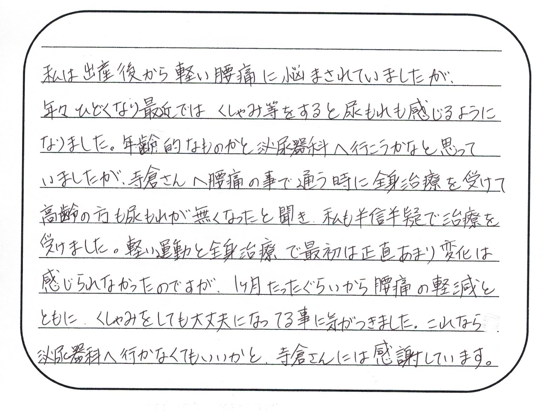 私は出産後から軽い腰痛に悩まされていましたが、
年々ひどくなり最近ではくしゃみ等をすると尿もれも感じるように
なりました。年齢的なものかと泌尿器科へ行こうかなと思って
いましたが、寺倉さんへ腰痛の事で通う時に全身治療を受けて
高齢の方も尿もれが無くなったと聞き、私も半信半疑で治療を
受けました。軽い運動と全身治療で最初は正直あまり変化は
感じられなかったのですが、1ヶ月たったぐらいから腰痛の軽減と
ともに、くしゃみをしても大丈夫になってる事に気がつきました。これなら
泌尿器科へ行かなくてもいいかと、寺倉さんには感謝しています。